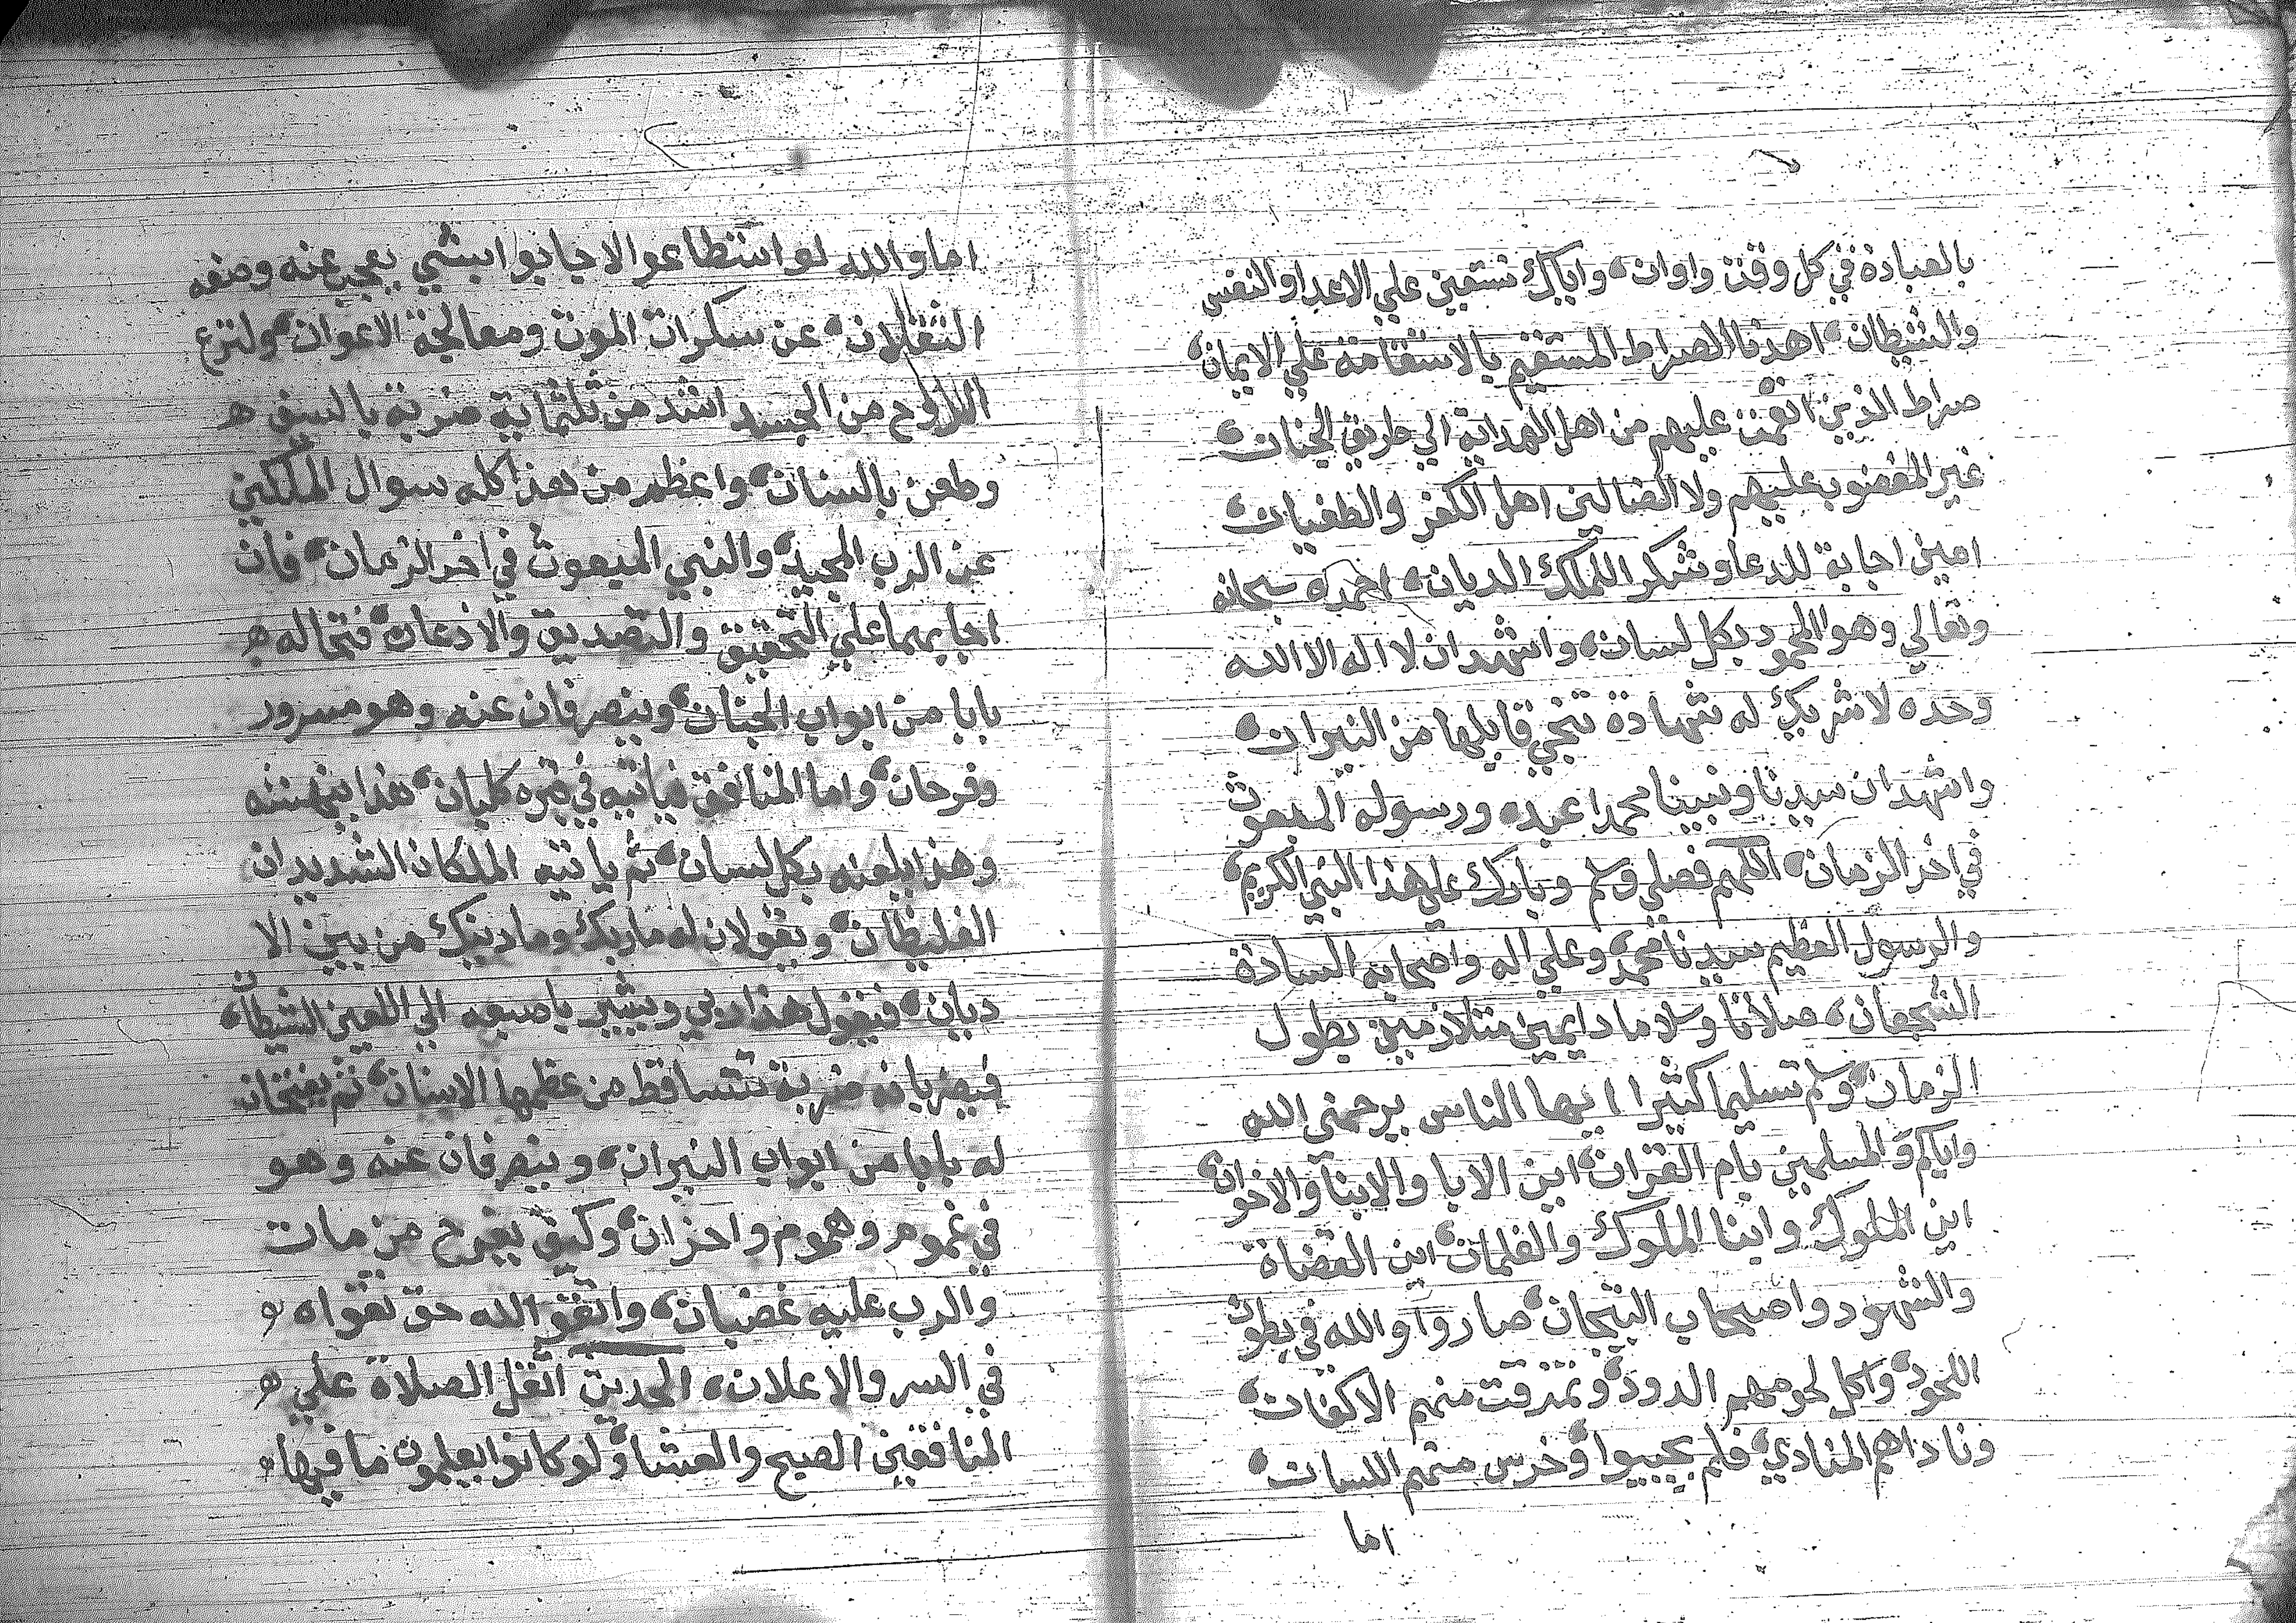 بالعبادة في كل وقت واوان، واياك نستعين علي الاعدا والنفس
والشيطان، اهدنا الصراط المستقيم بالاستقامة علي الايمان،
صراط الذين انعمت عليهم من اهل الهداية الي طريق الجنات،
غير المغضوب عليهم ولا الضالين اهل الكفر والطغيان،
امين اجابة للدعا وشكر الملك الديان، احمده سبحانه
وتعالي وهو المحمود بكل لسان، واشهد ان لا اله الا الله
وحده لا شريك له شهادة تنجي قايلها من النيران،
واشهد ان سيدنا ونبينا محمدا عبده ورسوله المبعوث
في اخر الزمان، اللهم فصلي وسلم وبارك علي هذا النبي الكريم،
والرسول العظيم سيدنا محمد، وعلي اله واصحابه السادة
الشجعان، صلاتا وسلاما دايمين متلازمين بطول
الزمان، وسلم تسليما كثيرا ايها الناس يرحمني الله
واياكم والمسلمين بام القران، اين الابا والابنا والاخوان،
اين الملوك وابنا الملوك والغلمان، اين القضاة
والشهود واصحاب التيجان، صاروا والله في بطون
اللحود، واكل لحومهم الدود، وتمزقت منهم الاكفان،
وناداهم المنادي، فلم يجيبوا، وخرس منهم اللسان،
اما
اما والله لو استطاعوا لاجابوا بشي يعجز عنه وصفه
الثقلان، عن سكرات الموت ومعالجة الاعوان، ولنزع
الروح من الجسد اشد من ثلثماية ضربة بالسيف ه
وطعن بالسنان، واعظم من هذا كله سوال الملكين
عن الرب المجيد، والنبي المبعوث في اخر الزمان، فان
اجابهما علي التحقيق والتصديق والاذعان، فتحا له ه
بابا من ابواب الجنان، وينصرفان عنه وهو مسرور
وفرحان، واما المنافق فياتيه في قبره كلبان، هذا ينهشه
وهذا يلعنه بكل لسان، ثم ياتيه الملكان الشديدان
الغليظان، ويقولان له ما ربك وما دينك من بين الا
ديان، فيقول هذا ربي ويشير باصبعه الي اللعين الشيطان،
فيضربانه ضربة تتساقط من عظمها الاسنان، ثم يفتحان
له بابا من ابواب النيران، وينصرفان عنه وهو
في غموم وهموم واحزان، وكيف يفرح من مات
والرب عليه غضبان، واتقو الله حق تقواه ه
في السر والاعلان، الحديث اثقل الصلاة علي ه
المنافقين الصبح والعشا، ولو كانوا يعلمون ما فيها ه